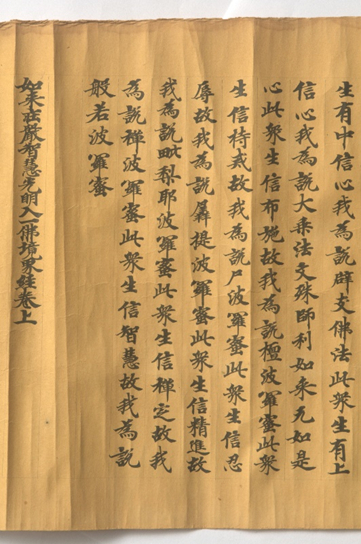 生有中信心我為說辟支佛法此眾生有上
信心我為說大乘法文殊師利如來尤如是
心此眾生信布施故我為說檀波羅蜜此眾
生信持戒故我為說尸波羅蜜此眾生信忍
辱故我為說羼提波羅蜜此眾生信精進故
我為說毗梨耶波羅蜜此眾生信禪定故我
為說禪波羅蜜此眾生信智慧故我為說
般若波羅蜜
如來莊嚴智慧光明入一切佛境界經卷上